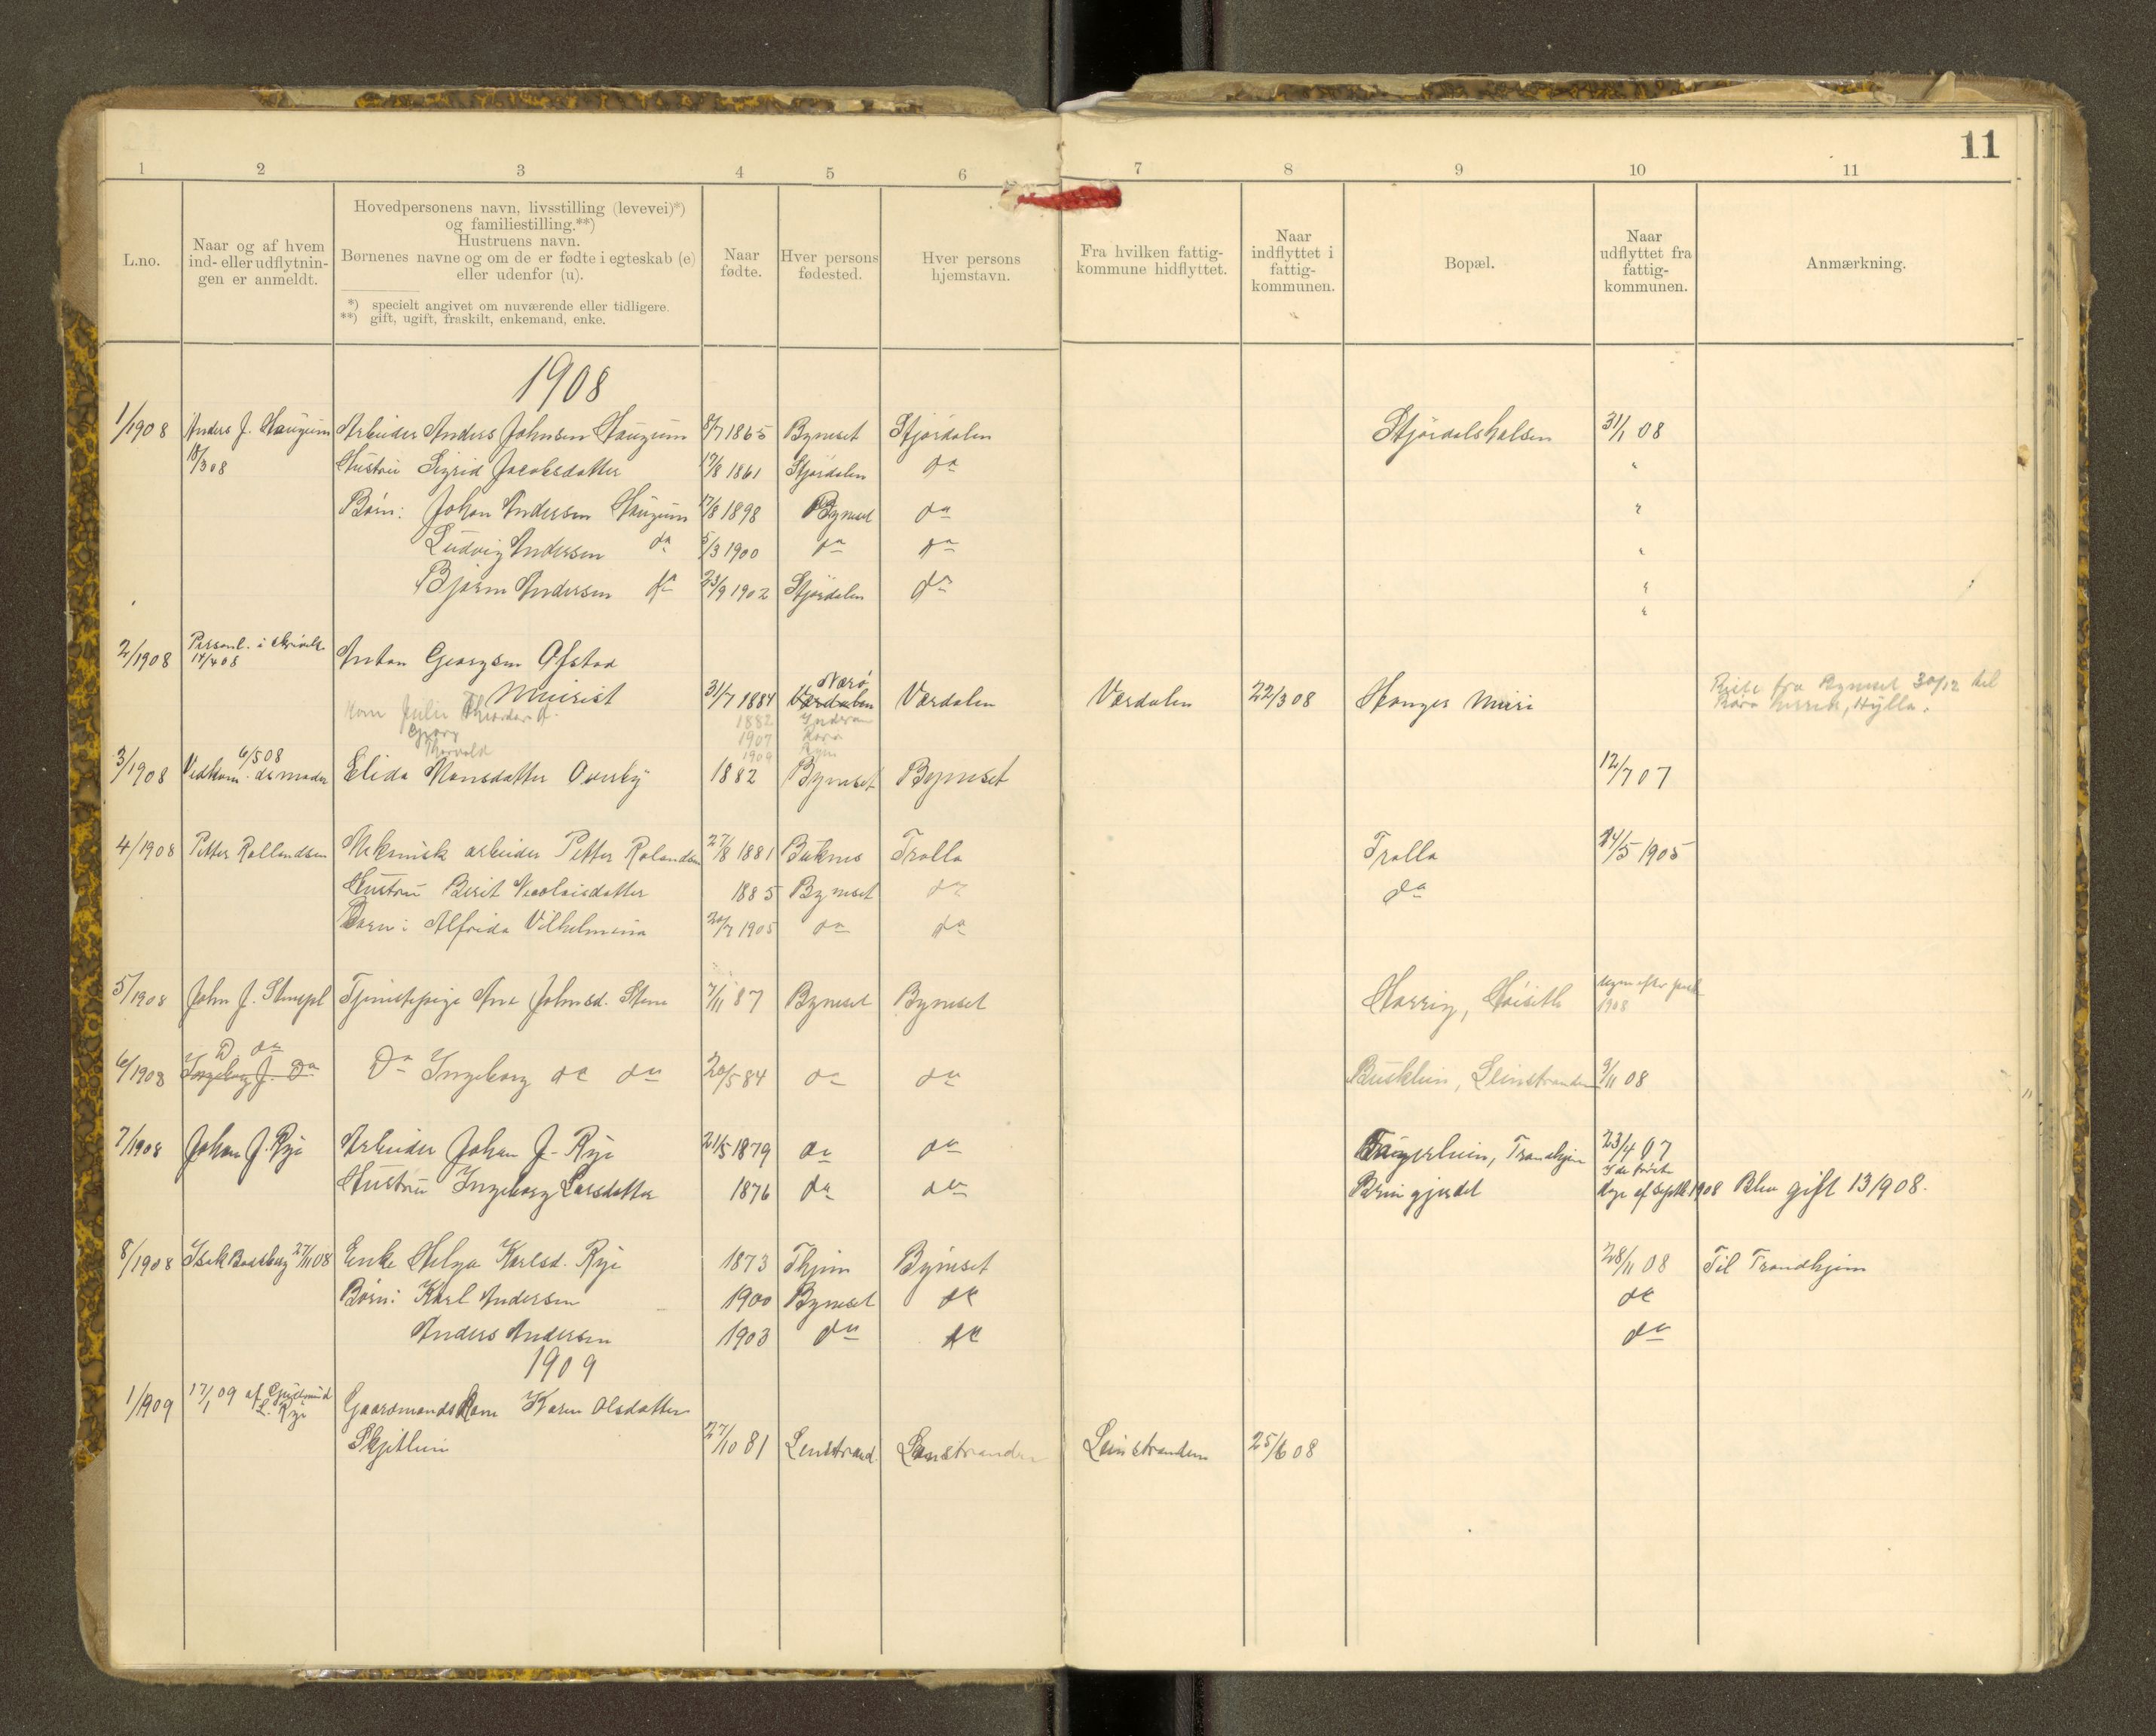 11
1 2 3 4 5 6 7 8 9 10 11
L.no.
Naar og af hvem
ind- eller udflytnin-
gen er anmeldt.
Hovedpersonens navn, livsstilling (levevei)*)
og familiestilling.**)
Hustruens navn.
Børnenes navne og om de er fødte i egteskab (e)
eller udenfor (u).
*) specielt angivet om nuværende eller tidligere.
**) gift, ugift, fraskilt, enkemand, enke.
Naar
fødte.
Hver persons
fødested.
Hver persons
hjemstavn.
Fra hvilken fattig-
kommune hidflyttet.
Naar
indflyttet i
fattig-
kommunen.
Bopæl.
Naar
udflyttet fra
fattig-
kommunen.
Anmærkning.
1908
1/1908 Anders J. Haugum Arbeider Anders Johnsen Haugum 8/7 1865 Bynæset Stjørdalen Stjørdalshalsen 31/1 08
18/3 08 Hustru Sigrid Jacobsdatter 17/8 1861 Stjørdalen do "
Børn: Johan Andersen Haugum 17/8 1898 Bynæset do "
Ludvig Andersen do 5/3 1900 do do "
Bjarne Andersen do 23/9 1902 Stjørdalen do "
"
2/1908 Personl. i skrivelse
14/4 08 Anton Georgsen Ofstad
Murist 31/7 1884 Værdalen Nærø Værdalen Værdalen 22/3 08 Hanger Reiste fra Bynæset 30/12 til
Kone Julie 1882
Georg 1907
Thorvald 1909
3/1908 6/5 08
Vedkom. des moder Elida Hansdatter Overby 1882 Bynæset Bynæset 12/7 07
4/1908 Petter Rollandsen Mekanisk arbeider Petter Rolandsen 27/8 1881 Buknes Trolla Trolla 14/5 1905
Hustru Berit Nicolaisdatter 1885 Bynæset do do
Barn: Alfrida Vilhelmina 20/7 1905 do do
5/1908 John J. Tjenestepige Ane Johnsd. Stene 7/11 87 Bynæset Bynæset
1908
6/1908 D. do
Ingeborg J. Do Do Ingeborg do do 20/5 84 do do Busklein, Leinstranden 9/11 08
7/1908 Johan J. Rye Arbeider Johan J. Rye 21/5 1879 do do Trondhjem 23/4 07
Hustru Ingeborg Larsdatter 1876 do do Bringjerdet I de første
dage af Septbr 1908 Blev gift 13/9 08.
8/1908 Isak Bodsberg 27/11 08 Enke Helga Karlsd. Rye 1873 Thjem Bynæset 28/11 08 Til Trondhjem
Børn: Karl Andersen 1900 Bynæset do do
Anders Andersen 1903 do do do
1909
1/1909 17/1 09 af Gudmund
L. Rye Gaardmandskone Karen Olsdatter
Skjetlein 27/10 81 Leinstrand. Leinstranden Leinstranden 25/6 08